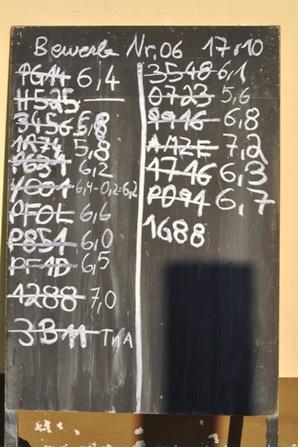 Bewerb Nr. 06 17:10
PG14 6,4
H525
3456 6,8
1R74 5,8
P634 6,2
6,4-0,2=6,2
PFOL 6,6
P854 6,0
PF4D 6,5
4288 7,0
3B11
3548 6,1
0723 5,6
9946 6,8
7,2
4746 6,3
P094 6,7
1688